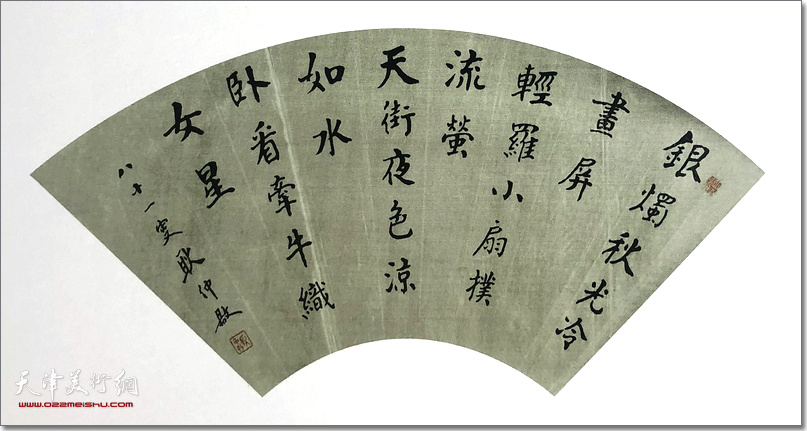 銀燭秋光冷
畫屏
輕羅小扇撲
流螢
天街夜色涼
如水
卧看牽牛織
女星
八十一叟耿仲敭
天津美術網
www.022meishu.com